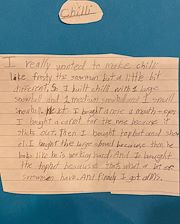 Chilli
I really wanted to make chilli
like frosty the snowman but a little bit
different, So I built chilli with 1 large
snowball and 1 medium snowball and 1 small
snowball. I bought a nose a mouth eyes
I bought a carrot for the nose because it
sticks out. Then I bought top hat and shovel
I bought the large shovel because then he
looks like he is working hard. And I bought
the top hat because that's what a lot of
snowmen have. And finally I got arms.